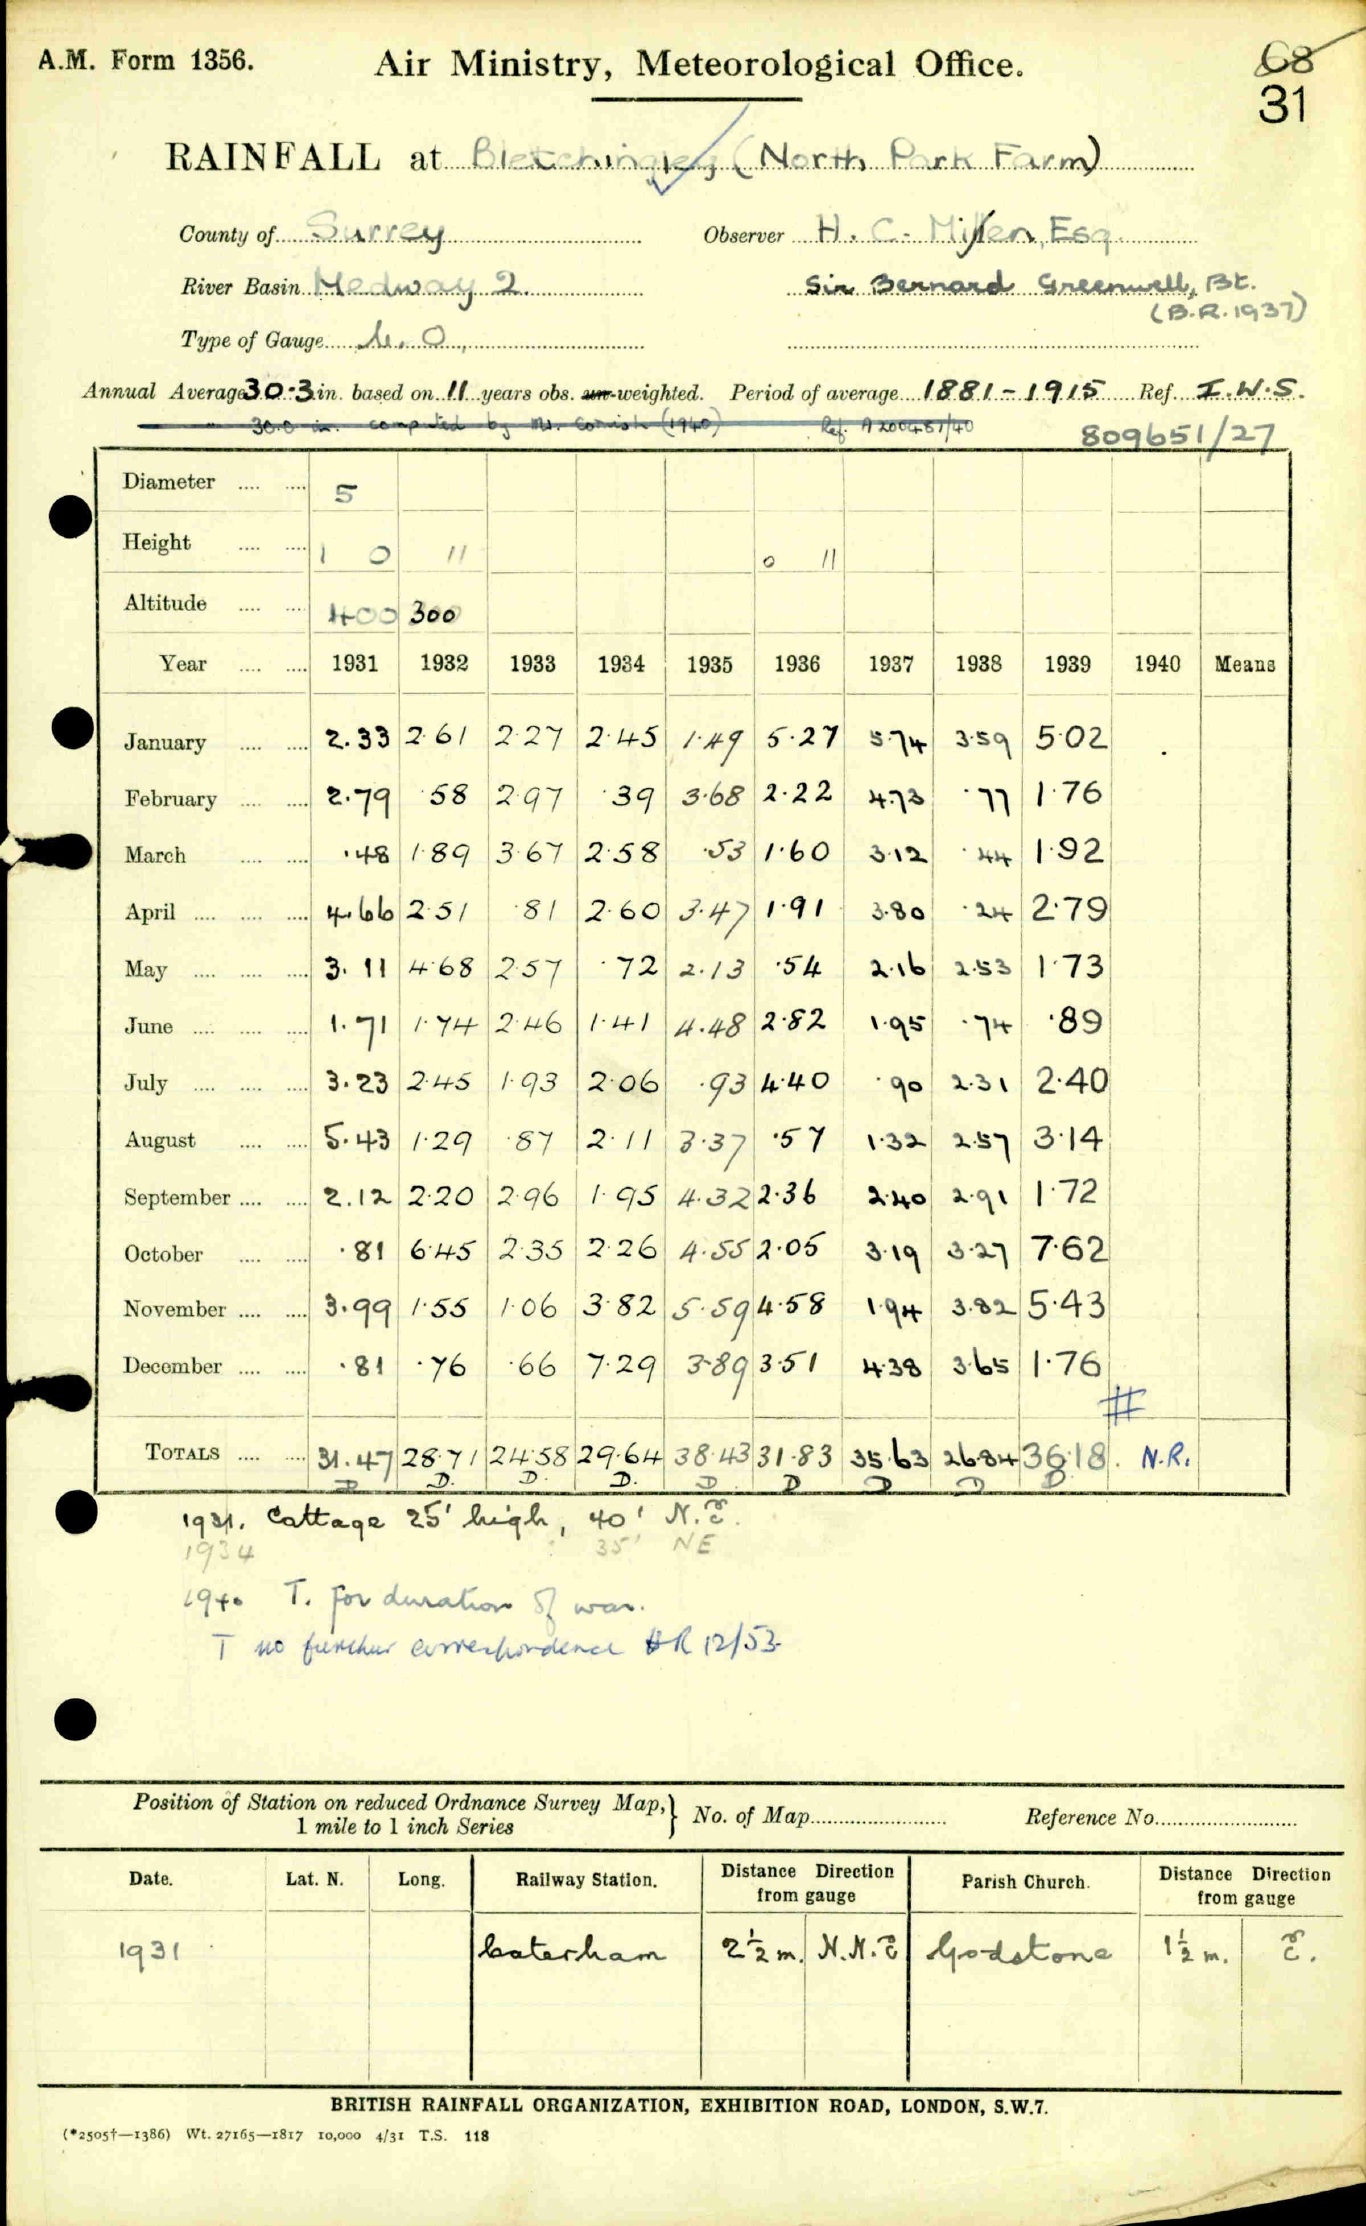 A.M. Form 1356.
Air Ministry, Meteorological Office.
68
31
RAINFALL at Bletchingley (North Park Farm)
County of Surrey
Observer H. C. Millen, Esq.
River Basin Medway 2.
Sir Bernard Greenwell, Bt.
(B.R. 1937)
Type of Gauge M.O.
Annual Average 30.3 in. based on 11 years obs. un-weighted. Period of average 1881-1915 Ref. I.W.S.
30.0 in. computed by Mr. Cornish (1940) Ref. A200481/40
809651/27
Diameter .... .... 5
Height .... .... 1 0 11 0 11
Altitude .... .... 400 300
Year .... .... 1931 1932 1933 1934 1935 1936 1937 1938 1939 1940 Means
January .... .... 2.33 2.61 2.27 2.45 1.49 5.27 5.74 3.59 5.02
February .... .... 2.79 .58 2.97 .39 3.68 2.22 4.73 .77 1.76
March .... .... .48 1.89 3.67 2.58 .53 1.60 3.12 .44 1.92
April .... .... .... 4.66 2.51 .81 2.60 3.47 1.91 3.80 .24 2.79
May .... .... .... 3.11 4.68 2.57 .72 2.13 .54 2.16 2.53 1.73
June .... .... .... 1.71 1.74 2.46 1.41 4.48 2.82 1.95 .74 .89
July .... .... .... 3.23 2.45 1.93 2.06 .93 4.40 .90 2.31 2.40
August .... .... 5.43 1.29 .87 2.11 3.37 .57 1.32 2.57 3.14
September .... .... 2.12 2.20 2.96 1.95 4.32 2.36 2.40 2.91 1.72
October .... .... .81 6.45 2.35 2.26 4.55 2.05 3.19 3.27 7.62
November .... .... 3.99 1.55 1.06 3.82 5.59 4.58 1.94 3.82 5.43
December .... .... .81 .76 .66 7.29 3.89 3.51 4.38 3.65 1.76
#
TOTALS .... .... 31.47 28.71 24.58 29.64 38.43 31.83 35.63 26.84 36.18 N.R.
D D. D. D. D D D D D
1931. Cottage 25' high, 40' N.E.
1934 35' NE
1940 T. for duration of war.
T no further correspondence HR 12/53
Position of Station on reduced Ordnance Survey Map, 1 mile to 1 inch Series } No. of Map Reference No.
Date. Lat. N. Long. Railway Station. Distance Direction from gauge Parish Church. Distance Direction from gauge
1931 Caterham 2½ m. N.N.E Godstone 1½ m. E.
BRITISH RAINFALL ORGANIZATION, EXHIBITION ROAD, LONDON, S.W.7.
(*2505†—1386) Wt. 27165—1817 10,000 4/31 T.S. 118